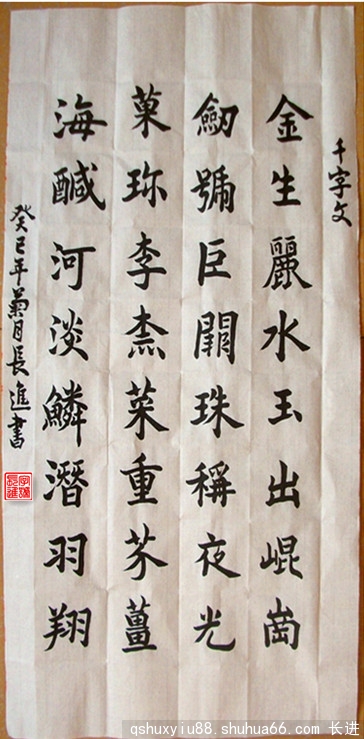 千字文
金生麗水玉出崐崗
劒號巨闕珠稱夜光
菓珎李杰菜重芥薑
海醎河淡鱗潛羽翔
癸巳年菊月長進書
qshuxyiu88.shuhua66.com 长进